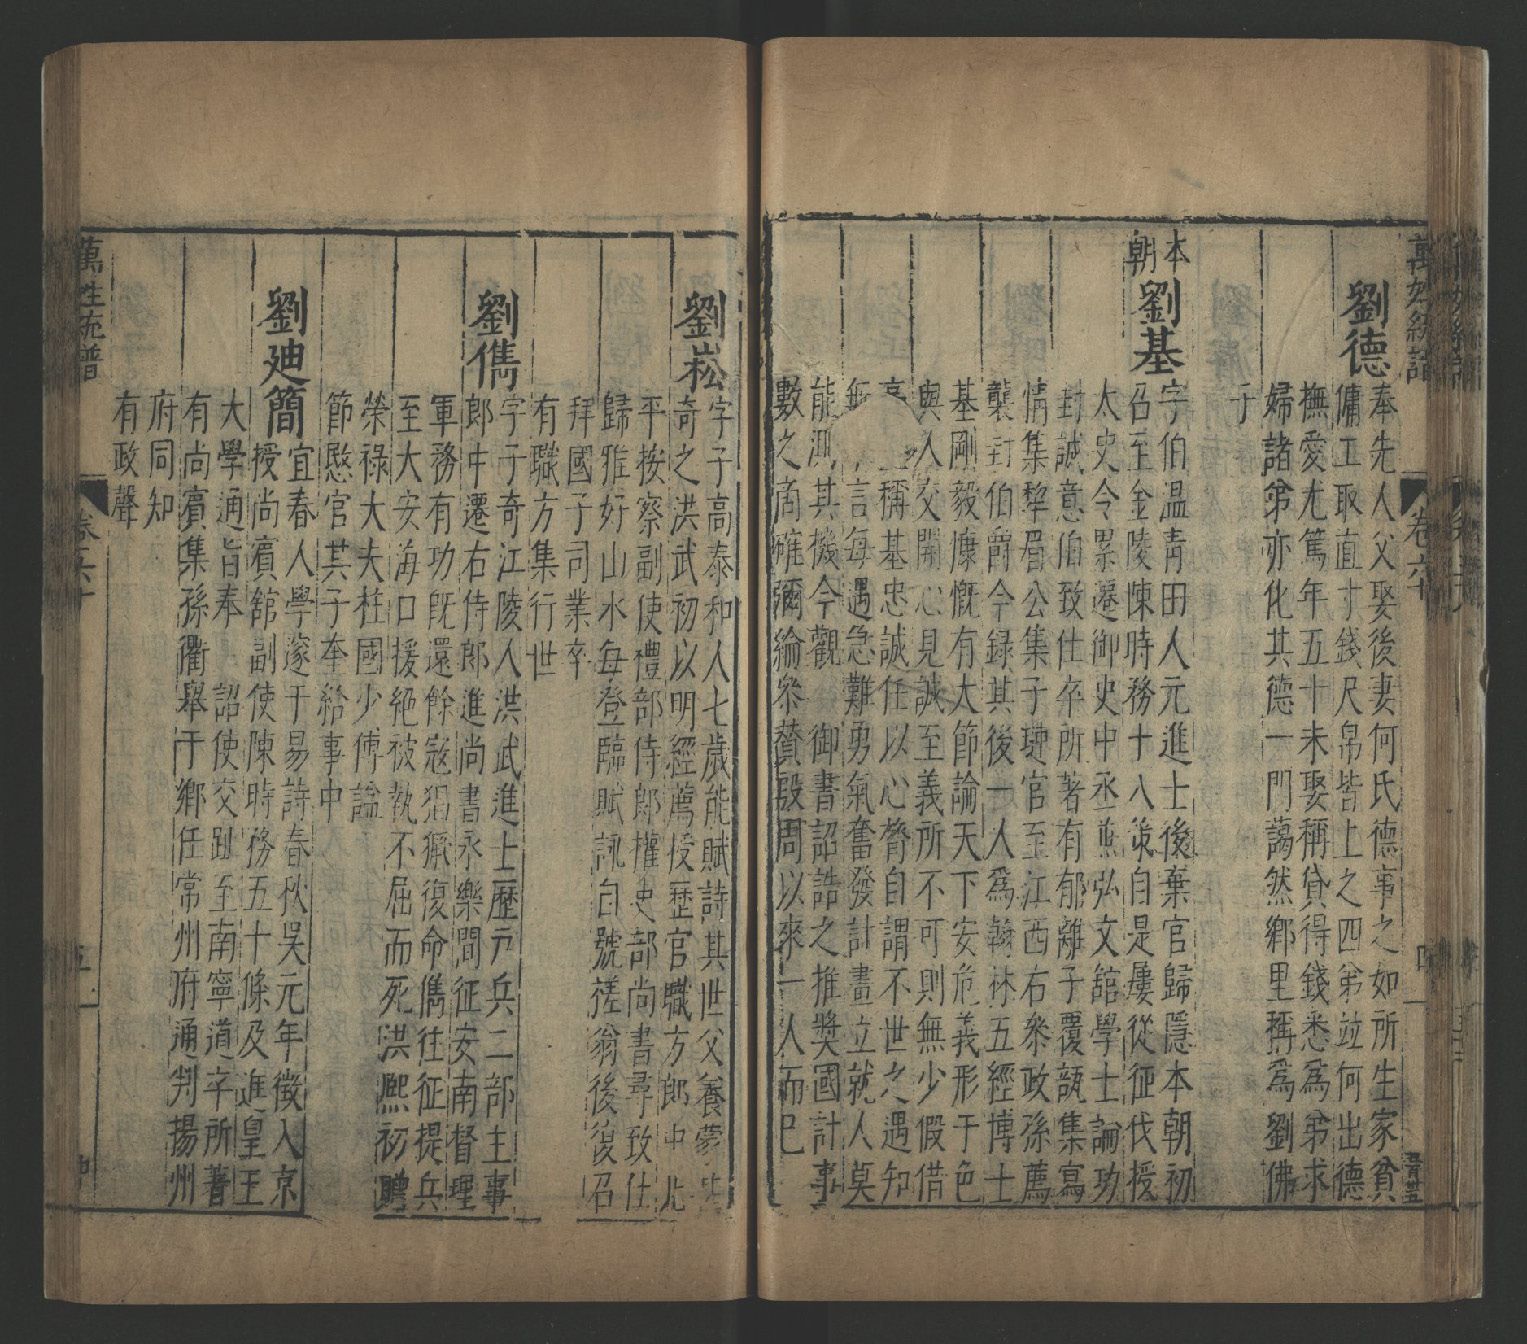 萬姓統譜 卷六十 四
劉德
奉先人父娶後妻何氏德事之如所生家貧
傭工取直寸錢尺帛皆上之四弟竝何出德
撫愛尤篤年五十未娶稱貸得錢悉爲弟求
婦諸弟亦化其德一門藹然鄉里稱爲劉佛
子
本朝
劉基
字伯温青田人元進士後棄官歸隱本朝初
召至金陵陳時務十八策自是屢從征伐授
太史令累遷御史中丞兼弘文館學士論功
封誠意伯致仕卒所著有郁離子覆瓿集寫
情集犂眉公集子璉官至江西右叅政孫薦
襲封伯爵今録其後一人爲翰林五經博士
基剛毅慷慨有大節論天下安危義形于色
與人交開心見誠至義所不可則無少假借
稱基忠誠任以心膂自謂不世之遇知
無 言每遇急難勇氣奮發計畫立就人莫
能測其機今觀 御書詔誥之推奬國計事
數之商確彌綸叅贊殷周以來一人而已
劉崧
字子高泰和人七歲能賦詩其世父養蒙
奇之洪武初以明經薦授歷官職方郎中北
平按察副使禮部侍郎權吏部尚書尋致仕
歸雅好山水每登臨賦詠自號槎翁後復召
拜國子司業卒
有職方集行世
劉儁
字子奇江陵人洪武進士歷戸兵二部主事
郎中遷右侍郎進尚書永樂間征安南督理
軍務有功旣還餘寇猖獗復命儁往征提兵
至大安海口援絶被執不屈而死洪熙初贈
榮祿大夫柱國少傅謚
節愍官其子奎給事中
劉廸簡
宜春人學邃于易詩春秋吳元年徵入京
授尚賔舘副使陳時務五十條及進皇王
大學通旨奉 詔使交趾至南寧道卒所著
有尚賔集孫衢舉于鄉任常州府通判揚州
府同知
有政聲
萬姓統譜 卷六十 五